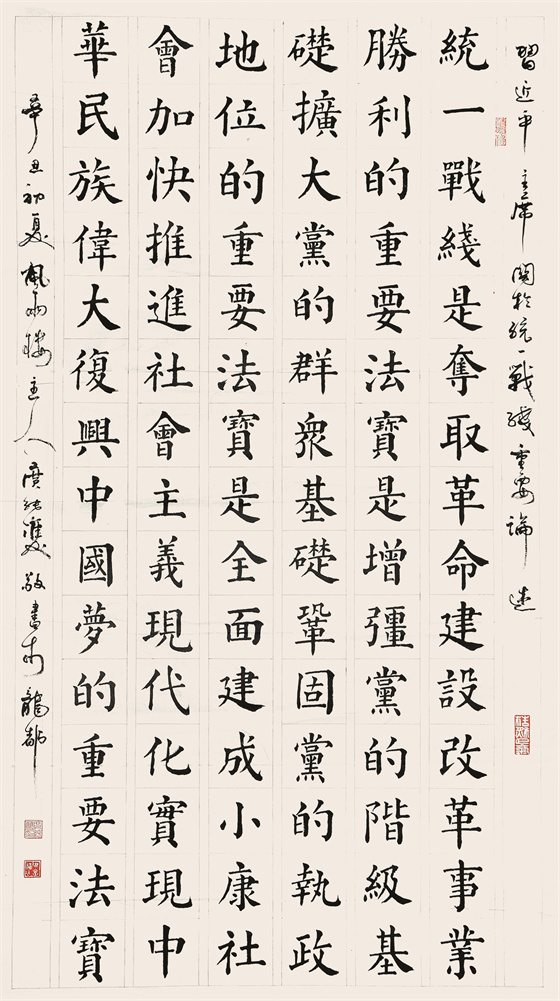 習近平主席關於統一戰綫重要論述
統一戰綫是奪取革命建設改革事業
勝利的重要法寶是增彊黨的階級基
礎擴大黨的群衆基礎鞏固黨的執政
地位的重要法寶是全面建成小康社
會加快推進社會主義現代化實現中
華民族偉大復興中國夢的重要法寶
辛丑初夏風雨樓主人敬書於龍都